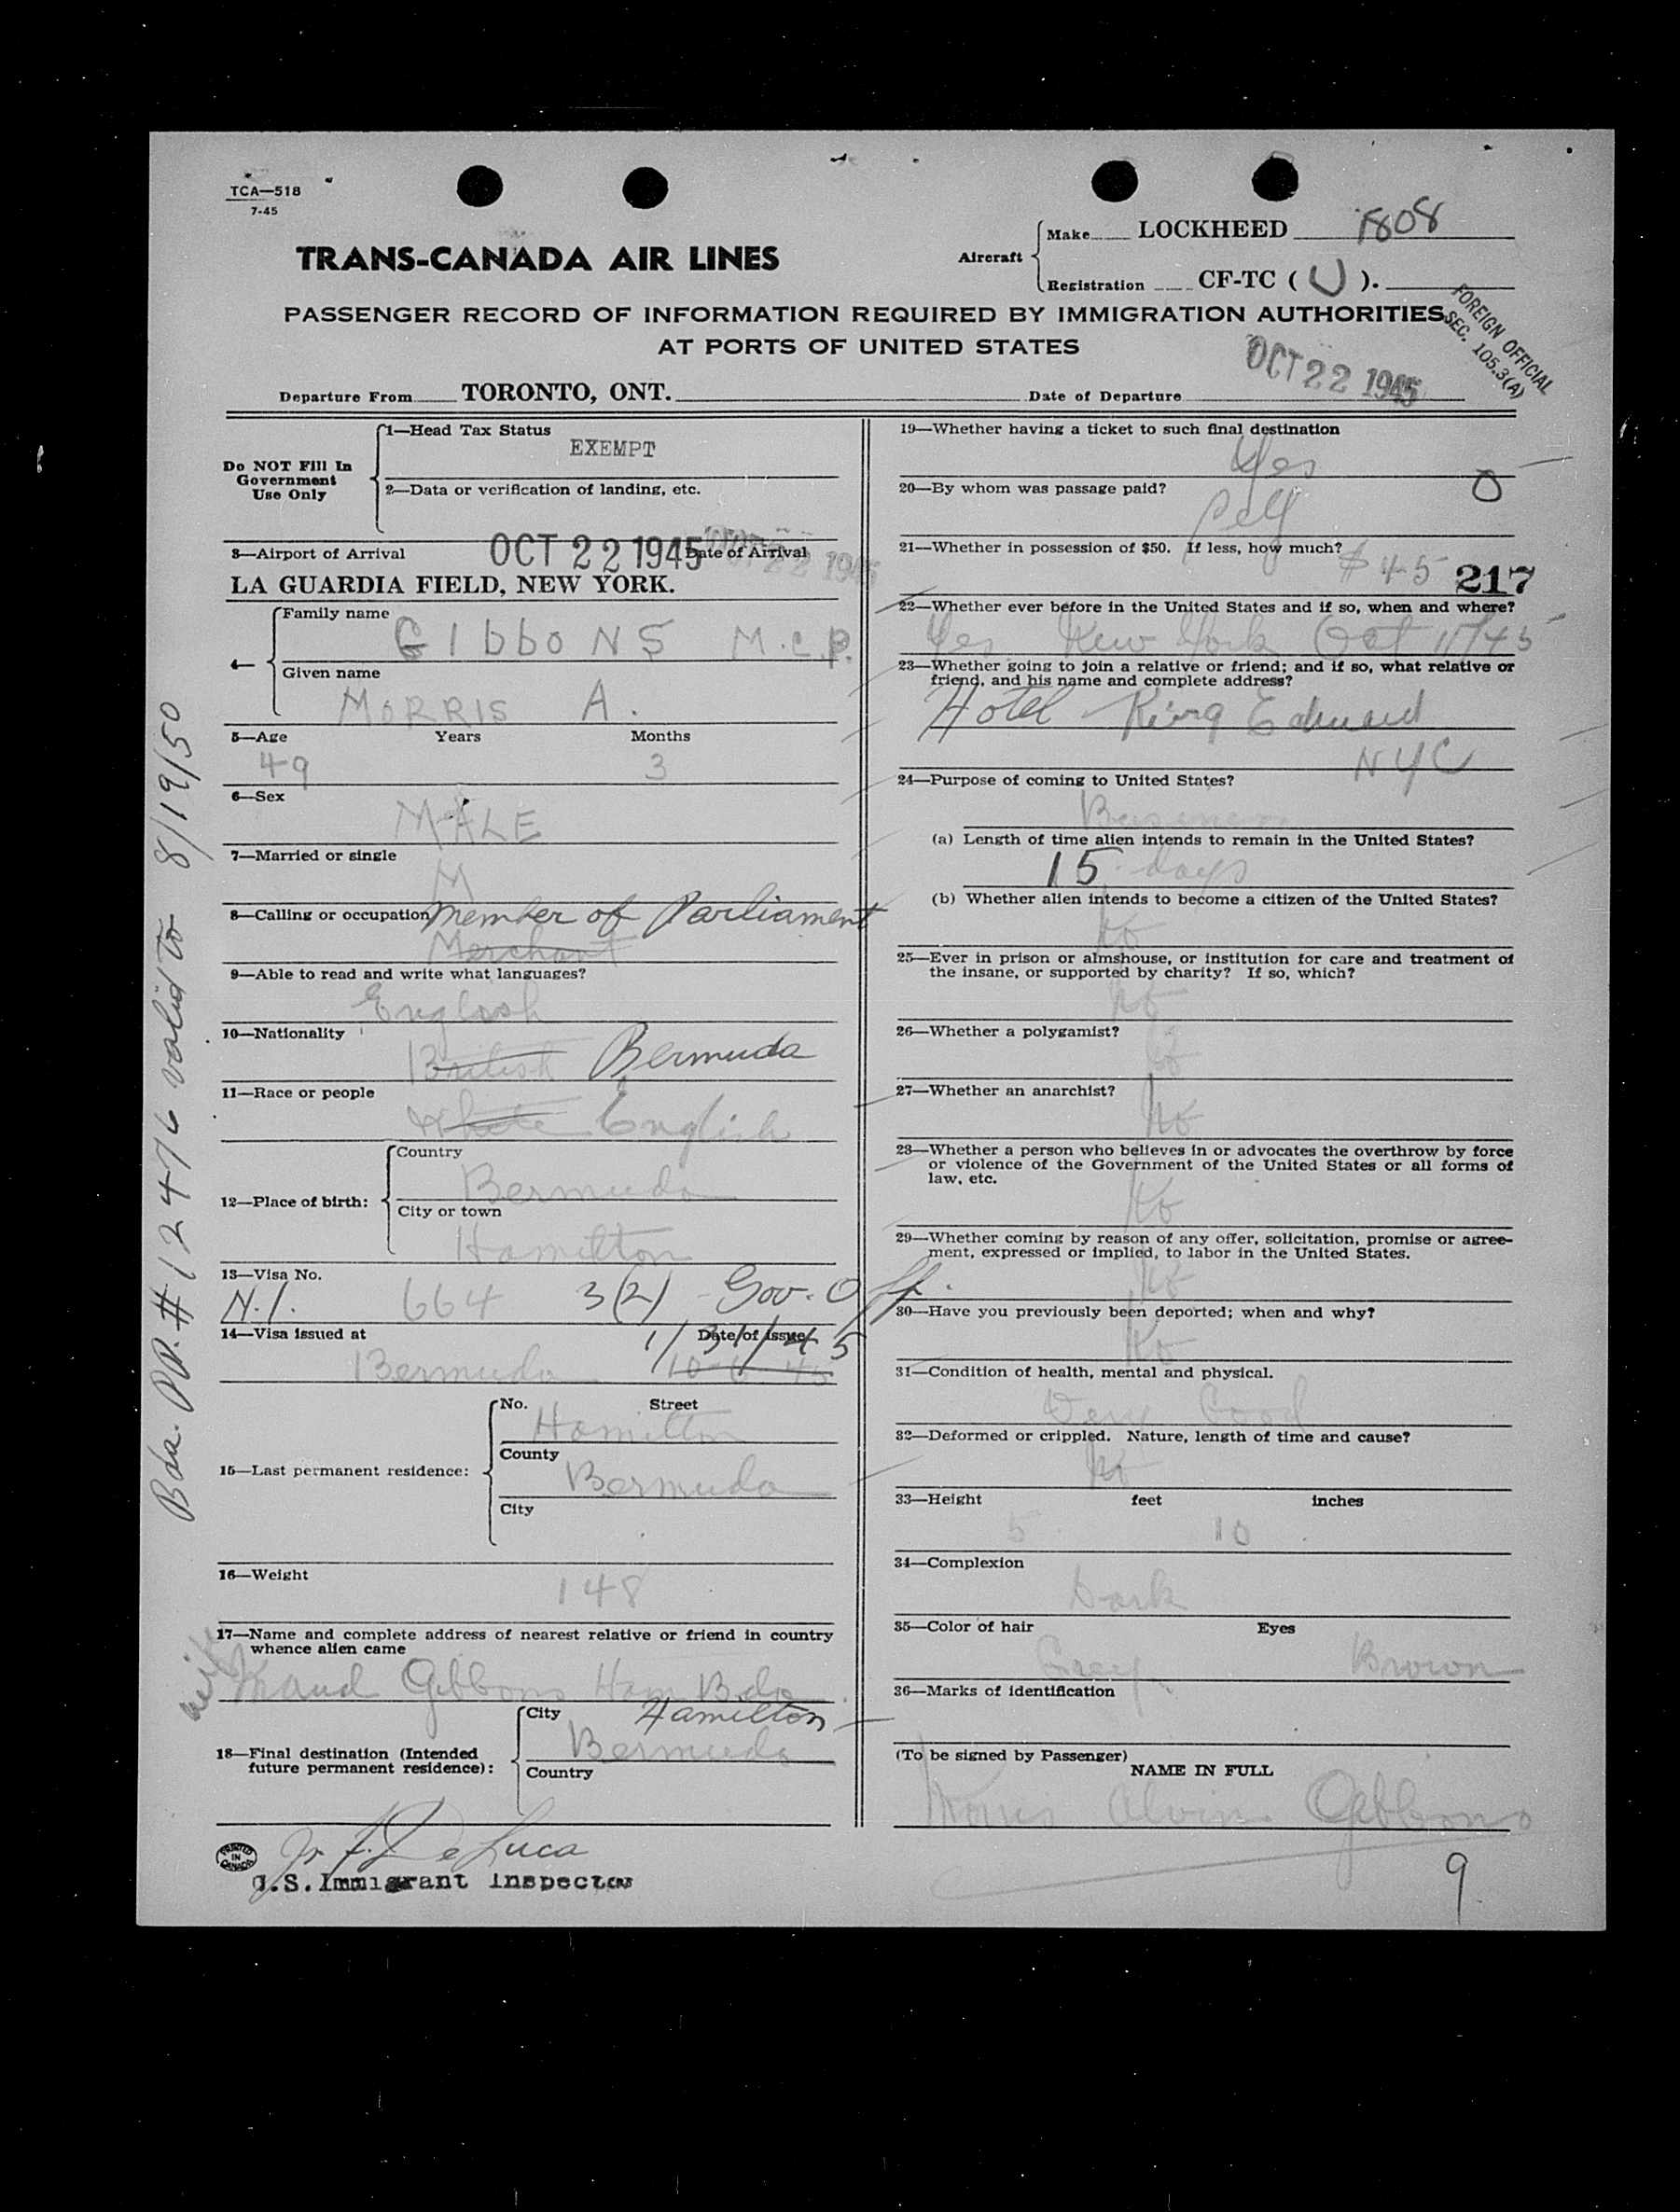 TCA—518
7-45
TRANS-CANADA AIR LINES
Aircraft
Make LOCKHEED 1808
Registration CF-TC ( U ).
PASSENGER RECORD OF INFORMATION REQUIRED BY IMMIGRATION AUTHORITIES
AT PORTS OF UNITED STATES
FOREIGN OFFICIAL
SEC. 105.3(A)
Departure From TORONTO, ONT. Date of Departure OCT 22 1945
Do NOT Fill In
Government
Use Only
1—Head Tax Status
EXEMPT
2—Data or verification of landing, etc.
3—Airport of Arrival OCT 22 1945 Date of Arrival OCT 22 1945
LA GUARDIA FIELD, NEW YORK.
4—
Family name
GIbboNS M.C.P.
Given name
MORRIS A.
5—Age Years Months
49 3
6—Sex
MALE
7—Married or single
M
8—Calling or occupation Member of Parliament
Merchant
9—Able to read and write what languages?
English
10—Nationality
British Bermuda
11—Race or people
White English
12—Place of birth:
Country
Bermuda
City or town
Hamilton
13—Visa No.
N.I. 664 3(2) - Gov. Off.
14—Visa issued at Date of issue
1/31/45
Bermuda 10-6-45
15—Last permanent residence:
No. Street
Hamilton
County
Bermuda
City
16—Weight
148
17—Name and complete address of nearest relative or friend in country
whence alien came
wife Maud Gibbons Ham Bda
18—Final destination (Intended
future permanent residence):
City Hamilton
Bermuda
Country
PRINTED
IN
CANADA
De Luca
U.S. Immigrant Inspector
Bda. PP. # 12476 valid to 8/19/50
19—Whether having a ticket to such final destination
Yes
20—By whom was passage paid? 0
Self
21—Whether in possession of $50. If less, how much?
$45 217
22—Whether ever before in the United States and if so, when and where?
Yes New York Oct 11/45
23—Whether going to join a relative or friend; and if so, what relative or
friend, and his name and complete address?
Hotel King Edward
NYC
24—Purpose of coming to United States?
Business
(a) Length of time alien intends to remain in the United States?
15 days
(b) Whether alien intends to become a citizen of the United States?
No
25—Ever in prison or almshouse, or institution for care and treatment of
the insane, or supported by charity? If so, which?
No
26—Whether a polygamist?
No
27—Whether an anarchist?
No
28—Whether a person who believes in or advocates the overthrow by force
or violence of the Government of the United States or all forms of
law, etc.
No
29—Whether coming by reason of any offer, solicitation, promise or agree-
ment, expressed or implied, to labor in the United States.
No
30—Have you previously been deported; when and why?
No
31—Condition of health, mental and physical.
Very Good
32—Deformed or crippled. Nature, length of time and cause?
No
33—Height feet inches
5 10
34—Complexion
Dark
35—Color of hair Eyes
Grey Brown
36—Marks of identification
(To be signed by Passenger)
NAME IN FULL
Morris Alvin Gibbons
9